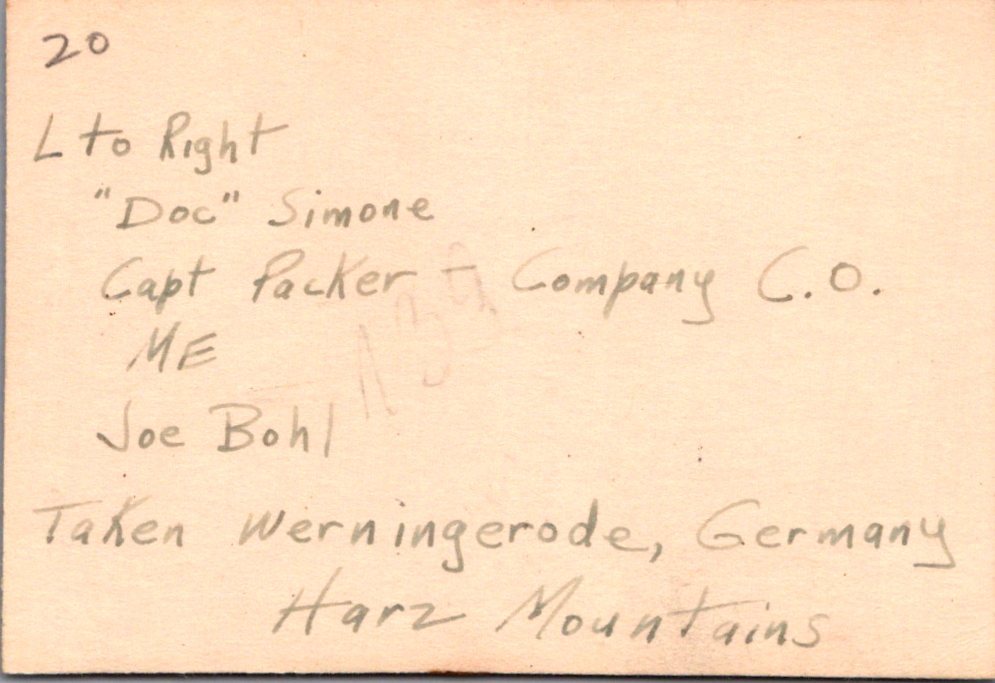 20
L to Right
"Doc" Simone
Capt Packer - Company C.O.
ME
Joe Bohl
Taken Werningerode, Germany
Harz Mountains